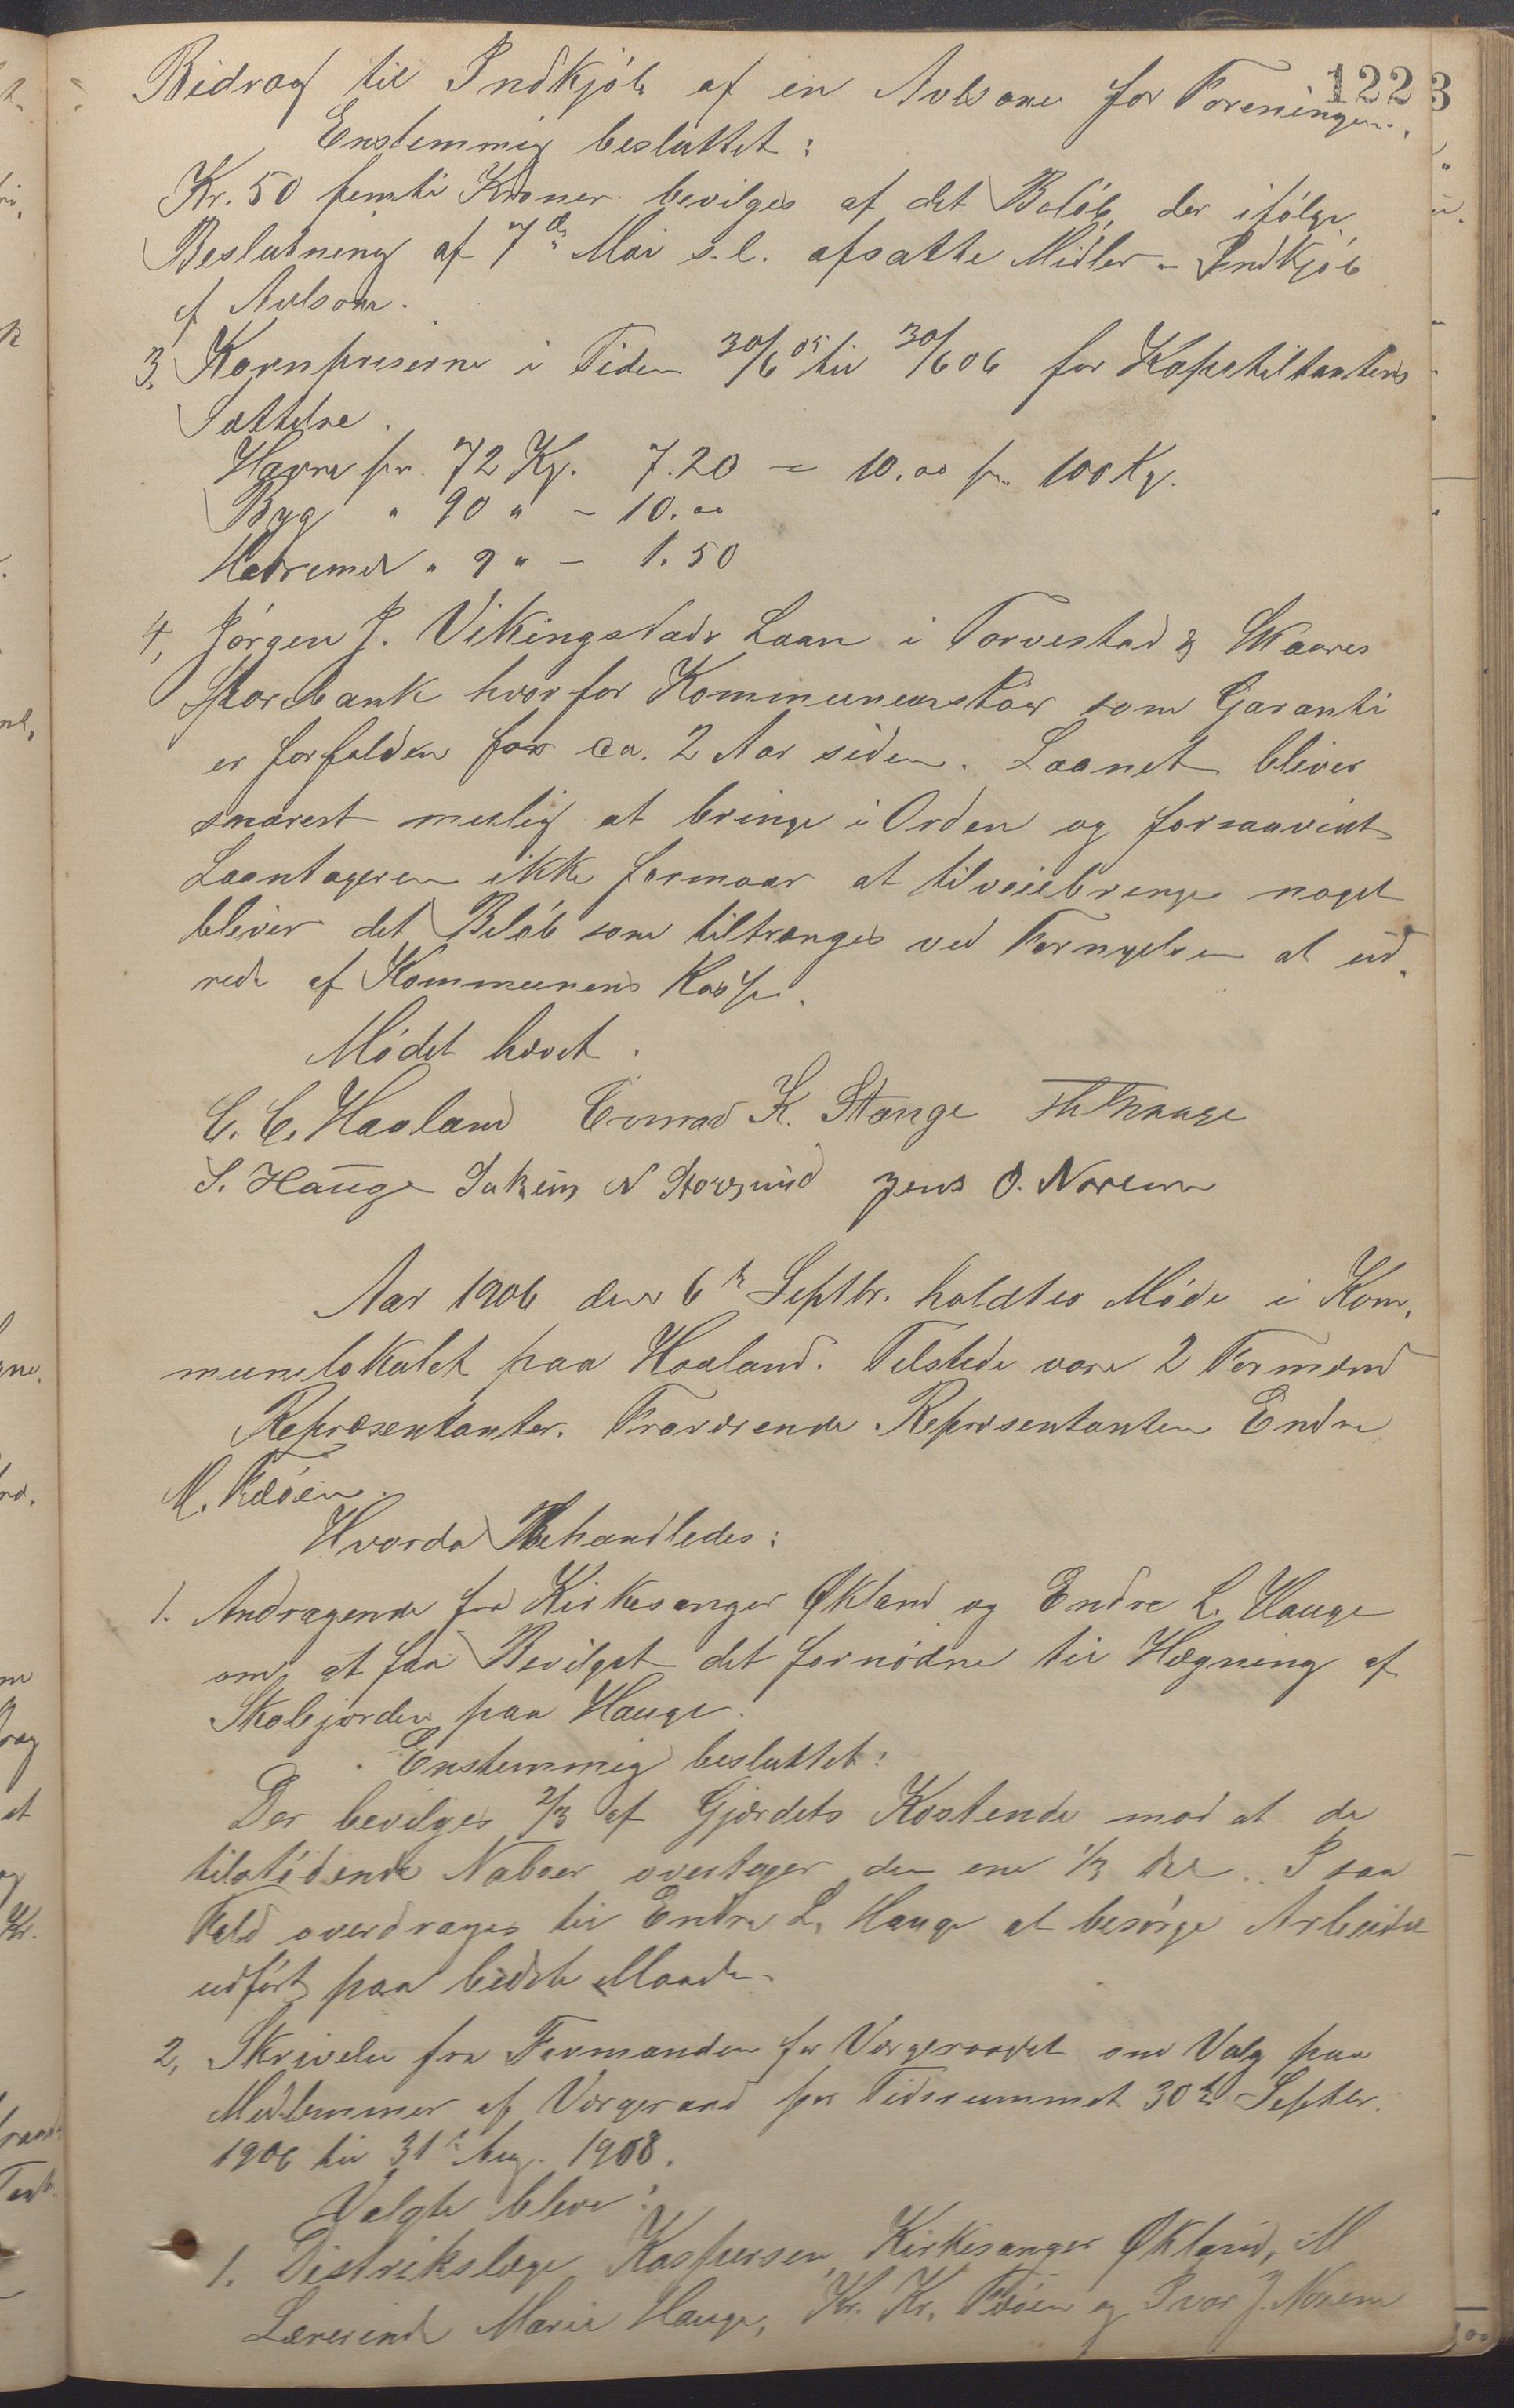 122
3
Bidrag til Indkjøb af en Avlsorne for Foreningen.
Enstemmig besluttet:
Kr. 50 femti Kroner bevilges af det Beløb der ifølge
Beslutning af 7de Mai s.l. afsatte Midler – Indkjøb
af Avlsorne.
3, Kornpriserne i Tiden 30/6 05 til 30/6 06 for Kapstiltantens
Sættelse.
Havre pr. 72 Kg. 7.20 = 10.00 pr. 100 Kg.
Byg " 90 " – 10.00
Havremel " 9 " – 1.50
4, Jørgen J. Vikingstads Laan i Torvestad & Skaares
Sparebank hvorfor Kommunen staar som Garanti
er forfalden for ca. 2 Aar siden. Laanet bliver
snarest mulig at bringe i Orden og forsaavidt
Laantageren ikke formaar at tilveiebringe noget
bliver det Beløb som tiltrænges ved Fornyelsen at ud-
rede af Kommunens Kasse.
Mødet hævet.
C. C. Haaland Conrad K. Stange Th Thrauge
S. Hauge Jakim N Storesund Jens O. Norem
Aar 1906 den 6te Septbr. holdtes Møde i Kom-
munelokalet paa Haaland. Tilstede vare 2 Formænd
Repræsentanter. Fraværende Repræsentanten Endre
M. Fæøen.
Hvorda Behandledes:
1. Andragende fra Kirkesanger Økland og Endre L. Hauge
om at faa Bevilget det fornødne til Hegning af
Skolejorden paa Hauge.
Enstemmig besluttet:
Der bevilges 2/3 af Gjærdets Kostende mod at de
tilstødende Naboer overtager den ene 1/3 Del. I saa
Fald overdrages til Endre L. Hauge at besørge Arbeidet
udført paa bedste Maade.
2, Skrivelse fra Formanden for Værgeraadet om Valg paa
Medlemmer af Værgeraad for Tidsrummet 30te Septbr.
1906 til 31te Aug. 1908.
Valgte bleve:
1. Distrikslæge Kaspersen, Kirkesanger Økland, M
Lærerinde Marie Hauge, Kr. Kr. Fæøen og Ivar J. Norem